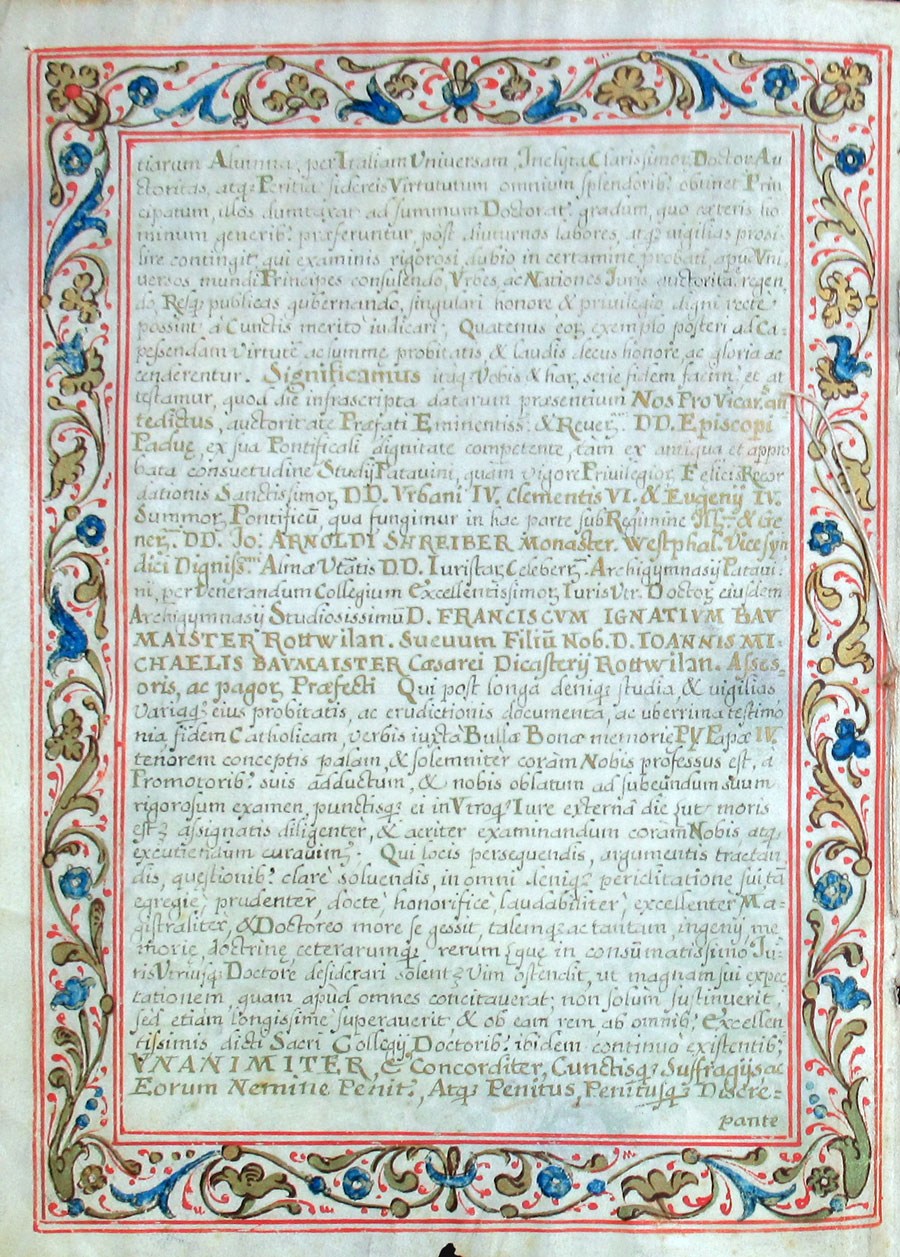 tiarum Alumna, per Italiam Universam, Inclyta Clarissimor, Doctor, Au
ctoritas, atq; Peritia sidereis Virtututum omnium splendorib: obtinet Prin
cipatum, illos dumtaxat ad summum Doctorat: gradum, quo cæteris ho
minum generib: præferuntur, pòst diuturnos labores, atq; vigilias prosi
lire contingit, qui examinis rigorosi dubio in certamine probati, apud Uni
versos mundi Principes consulendo, Vrbes, ac Nationes Iuris auctorita. regen
do, Resq; publicas gubernando, singulari honore & privilegio digni rectè
possint à Cunctis meritò iudicari, Quatenus eor, exemplo posteri ad Ca-
pessendam virtutē ac summę probitatis, & laudis decus honore, ac gloria ac
cenderentur. Significamus itaq; Vobis & har, serie fidem facim, et at
testamur, quod die infrascripta datarum præsentium Nos Pro Vicar. an
tedictus, auctoritate Præfati Eminentiss: & Rever. DD. Episcopi
Paduę, ex sua Pontificali dignitate competente, tàm ex antiqua et appro
bata consuetudine Studij Patavini, quàm vigore Privilegior, Felicis Recor
dationis Sanctissimor, D.D. Vrbani IV. Clementis VI. & Eugenij IV.
Summor, Pontificū, qua fungimur in hac parte sub Regimine Ill. & Ge
ner. DD. Jo: ARNOLDI SHREIBER Monaster. Westphal. Vice Syn
dici Digniss. Almæ Vtātis D.D. Iuristar, Celeberr. Archigymnasij Patavi
ni, per Venerandum Collegium Excellentissimor, Iuris Vtr. Doctor, eiusdem
Archigymnasij Studiosissimū D. FRANCISCVM IGNATIVM BAV
MAISTER Rottwilan. Suevum Filiū Nob. D. IOANNIS MI-
CHAELIS BAVMAISTER Cæsarei Dicasterij Rottwilan. Asses-
oris, ac pagor, Præfecti Qui post longa deniq; studia & vigilias
variaq; eius probitatis, ac eruditionis documenta, ac uberrima testimo
nia, fidem Catholicam, verbis iuxta Bullæ Bonæ memorię PY Papæ IV
tenorem conceptis palàm, & solemnitèr coràm Nobis professus est, à
Promotorib: suis adductum, & nobis oblatum ad subeundum suum
rigorosum examen, punctisq; ei in Vtroq; Iure externa die, sut moris
est, assignatis diligenter, & acriter examinandum coràm Nobis atq;
excutiendum curavim. Qui locis persequendis, argumentis tractan
dis, quęstionib: clarè solvendis, in omni deniq; periclitatione suì tā
egregiè, prudentèr, doctè, honorificè, laudabilitèr, excellenter, Ma-
gistralitèr, & Doctoreo more se gessit, talemq; ac tantam, ingenij me
morię, doctrinę, ceterarumq; rerum, quę in consūmatissimo Ju-
ris Vtriusq; Doctore desiderari solent, Vim ostendit, ut magnam sui expec
tationem, quam apùd omnes cōcitaverat, non solum sustinuerit,
sed etiàm longissimè superaverit, & ob eam rem, ab omnib: Excellen
tissimis dicti Sacri Collegij Doctorib: ibidem continuò existentib;
VNANIMITER, & Concorditer, Cunctisq; Suffragijs ac
Eorum Nemine Penit: Atq; Penitus, Penitusq; Discre-
pante